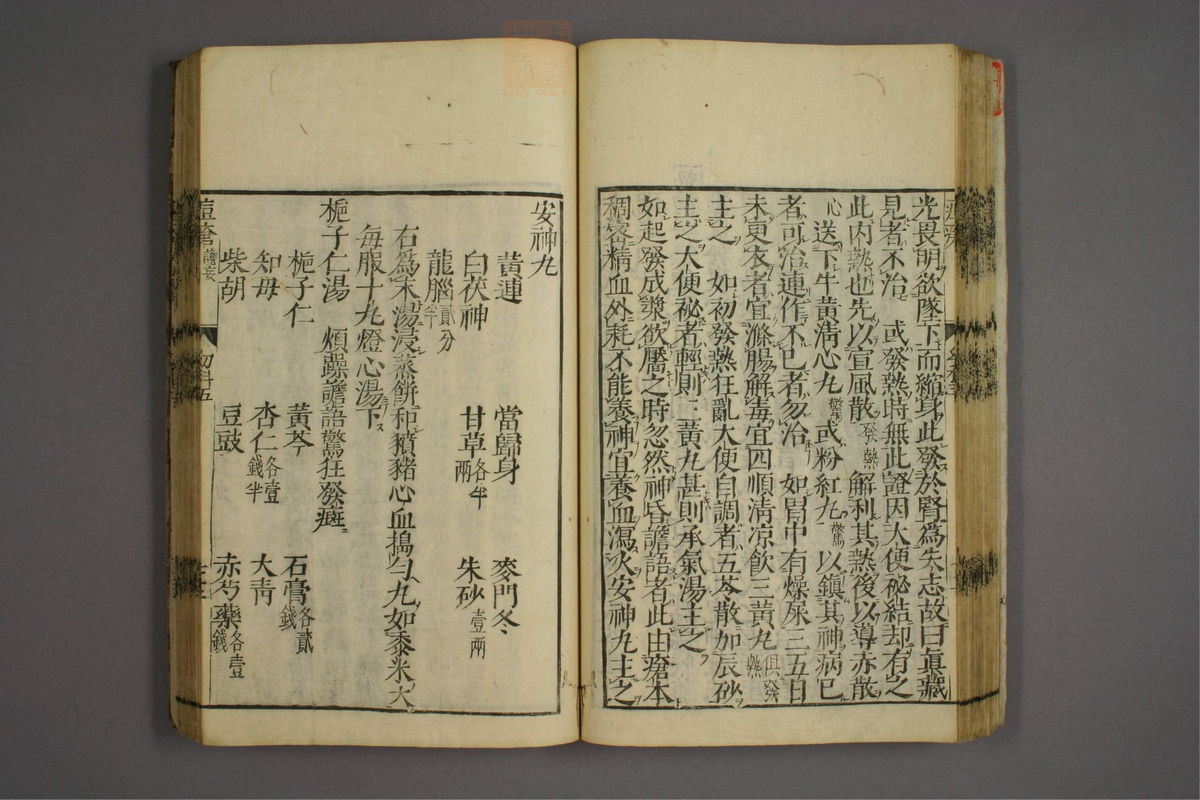 光畏明欲墜下而縮身此發於腎爲失志故曰眞藏
見者不治　或發熱時無此證因大便祕結却有之
此内熱也先以宣風散發熱解利其熱後以導赤散
心送下牛黄淸心丸驚或粉紅丸驚以鎭其神病已
者可治連作不已者勿治　如胃中有燥屎三五日
未更衣者宜滌腸解毒宜四順淸凉飮三黄丸俱發熱
主之　如初發熱狂亂大便自調者五苓散加辰砂
主之大便祕者輕則三黄丸甚則承氣湯主之
如起發成漿欲靨之時忽然神昏譫語者此由瘡本
稠密精血外耗不能養神宜養血瀉火安神丸主之
安神丸
黄連　當歸身　麥門冬
白茯神　甘草各半兩　朱砂壹兩
龍腦貳分半
右爲末湯浸蒸餅和豶豬心血搗勻丸如黍米大
每服十丸燈心湯下
梔子仁湯　煩躁譫語驚狂發癍
梔子仁　黄芩　石膏各貳錢
知母　杏仁各壹錢半　大靑
柴胡　豆豉　赤芍藥各壹錢
幼科五